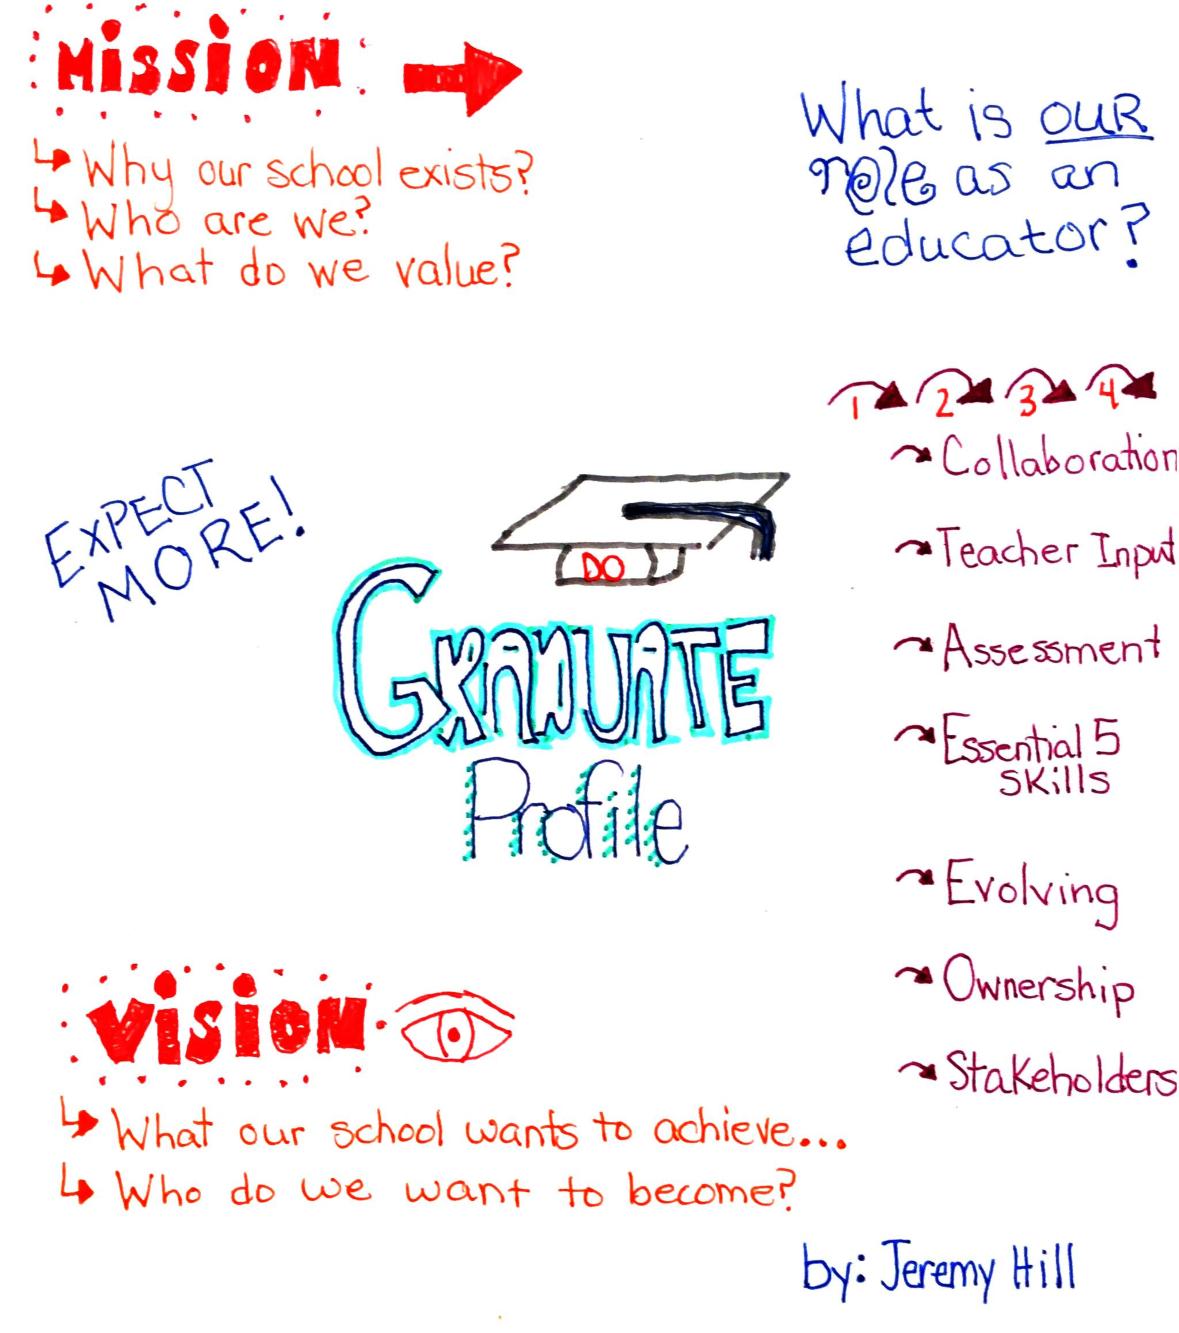 Mission
Why our school exists?
Who are we?
What do we value?
What is OUR
role as an
educator?
1 2 3 4
Collaboration
Teacher Input
Assessment
Essential 5
Skills
Evolving
Ownership
Stakeholders
EXPECT
MORE!
DO
GRADUATE
Profile
Vision
What our school wants to achieve...
Who do we want to become?
by: Jeremy Hill